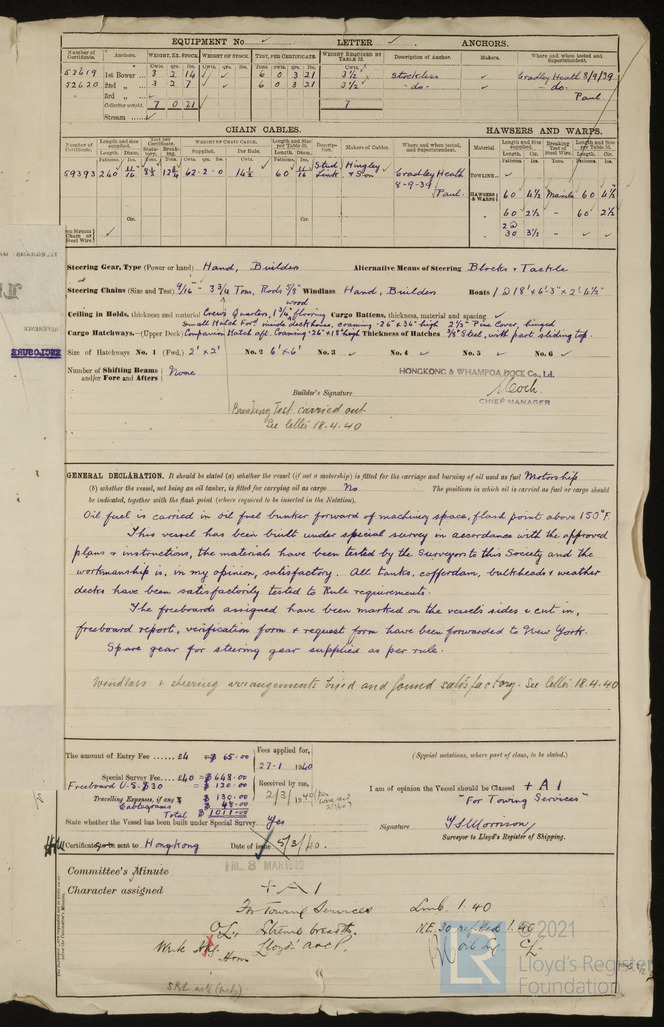 EQUIPMENT No. ✓ LETTER ✓ ANCHORS.
Number of Certificate. Anchors. WEIGHT, EX. STOCK. WEIGHT OF STOCK. TEST, PER CERTIFICATE. WEIGHT REQUIRED BY TABLE 31. Description of Anchor. Makers. Where and when tested, and Superintendent.
Cwts. qrs. lbs. Cwts. qrs. lbs. Tons. cwts. qrs. lbs. Cwts.
52619 1st Bower ... 3 2 14 ✓ ✓ 6 0 3 21 3½ ✓ Stockless ✓ Cradley Heath 8/9/39
52620 2nd „ ... 3 2 7 6 0 3 21 3½ - do - - do -
3rd „ ✓ Paul.
Collective weight. 7 0 21 7
Stream ... ✓
CHAIN CABLES. HAWSERS AND WARPS.
Number of Certificate. Length and size supplied. Test per Certificate. WEIGHT OF CHAIN CABLE. Length and size per Table 31. Description. Makers of Cables. Where and when tested, and Superintendent. Material. Length and size supplied. Breaking Test of Steel Wire. Length and Size per Table 31.
Length. Diam. Supplied. Per Rule. Length. Diam. Length. Cir. Length. Cir.
Fathoms. Ins. Tons. Tons. Cwts. qrs. lbs. Cwts. Fathoms. Ins. TOWLINE Fathoms. Ins. Tons. Fathoms. Ins.
59393 240 11/16 8½ 12¾ 62-2-0 14½ 60 11/16 Stud Link Hingley & Son Cradley Heath
8-9-39 Paul. HAWSERS & WARPS 60 4½ Manila 60 4½
„ 60 2½ - 60 2½
„ 2@ 30 3½ - ✓ ✓
Cir. Cir.
Stream Chain or Steel Wire ✓
Steering Gear, Type (Power or hand) Hand, Builders Alternative Means of Steering Blocks & Tackle
Steering Chains (Size and Test) 9/16" - 3¾ Tons, Rods 5/8" Windlass Hand, Builders Boats 1 @ 18' x 6'-3" x 2'-4½"
Ceiling in Holds, thickness and material Crews Quarters, 1¼" wood flooring Cargo Battens, thickness, material and spacing ✓
Small Hatch Ford inside deckhouse, coaming 26" x 36" high 2½" Pine Cover, hinged
Cargo Hatchways.—(Upper Deck) Companion Hatch aft. Coaming 26" x 18" high Thickness of Hatches 3/8" Steel, with part sliding top.
Size of Hatchways No. 1 (Fwd.) 2' x 2' No. 2 6' x 6' No. 3 ✓ No. 4 ✓ No. 5 ✓ No. 6 ✓
Number of Shifting Beams and/or Fore and Afters } None
HONGKONG & WHAMPOA DOCK Co., Ld.
Builder's Signature
CHIEF MANAGER
Breaking Test carried out
See letter 18.4.40
GENERAL DECLARATION. It should be stated (a) whether the vessel (if not a motorship) is fitted for the carriage and burning of oil used as fuel Motorship
(b) whether the vessel, not being an oil tanker, is fitted for carrying oil as cargo No The positions in which oil is carried as fuel or cargo should
be indicated, together with the flash point (where required to be inserted in the Notation).
Oil fuel is carried in oil fuel bunker forward of machinery space, flash point above 150°F.
This vessel has been built under special survey in accordance with the approved
plans & instructions, the materials have been tested by the Surveyors to this Society and the
workmanship is, in my opinion, satisfactory. All tanks, cofferdam, bulkheads & weather
decks have been satisfactorily tested to Rule requirements.
The freeboards assigned have been marked on the vessels sides & cut in,
freeboard report, verification form & request form have been forwarded to New York.
Spare gear for steering gear supplied as per rule.
Windlass & steering arrangements tried and found satisfactory. See letter 18.4.40
The amount of Entry Fee ...... £4 = $ 65.00 Fees applied for,
27-1 1940
Special Survey Fee... £40 = $ 648.00
Freeboard U.S. $30 = $ 120.00 Received by me,
Travelling Expenses, if any $ $ 130.00 2/3/1940
Cablegrams $ 48.00
Total $ 1011.00
(Special notations, where part of class, to be stated.)
I am of opinion the Vessel should be Classed + A 1
"For Towing Services"
State whether the Vessel has been built under Special Survey Yes
Signature
Surveyor to Lloyd's Register of Shipping.
Certificate to be sent to Hongkong Date of issue 5/3/40.
FRI. 8 MAR 1940
Committee's Minute
Character assigned + A 1
For Towing Services
Lloyds A & C P.
Lmb. 1.40
© 2021
Lloyd's Register
Foundation
ENCLOSURE
REFERENCE